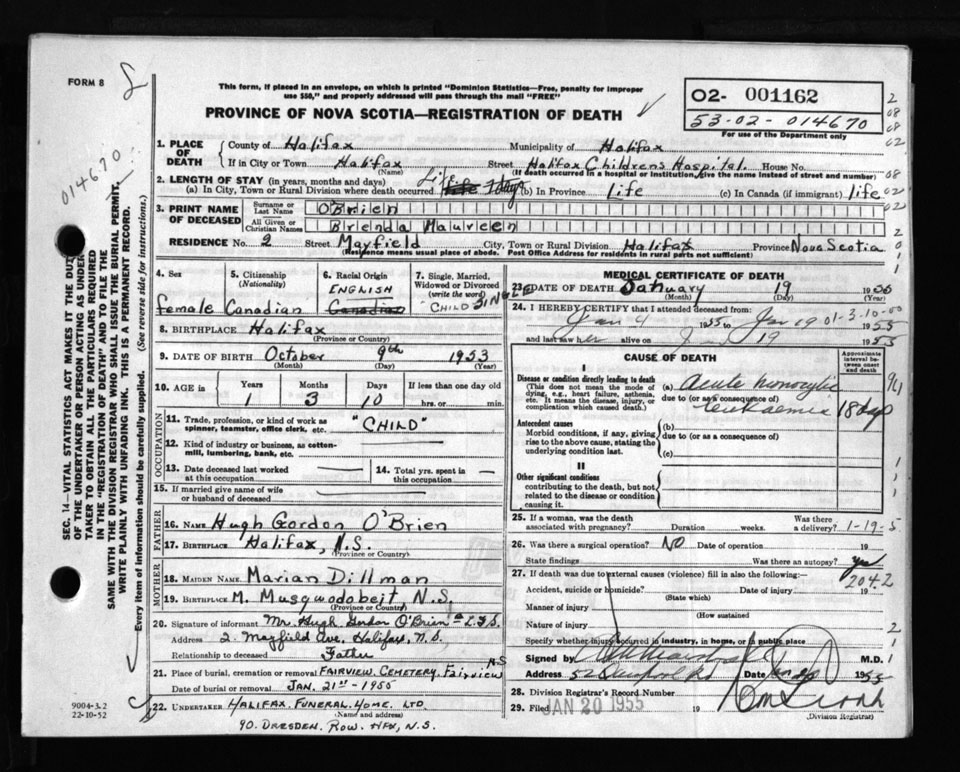 FORM 8
This form, if placed in an envelope, on which is printed "Dominion Statistics—Free, penalty for improper
use $50," and properly addressed will pass through the mail "FREE"
PROVINCE OF NOVA SCOTIA—REGISTRATION OF DEATH
02- 001162
53-02-014670
For use of the Department only
014670
SEC. 14—VITAL STATISTICS ACT MAKES IT THE DUTY
OF THE UNDERTAKER OR PERSON ACTING AS UNDER-
TAKER TO OBTAIN ALL THE PARTICULARS REQUIRED
IN THE "REGISTRATION OF DEATH" AND TO FILE THE
SAME WITH THE DIVISION REGISTRAR WHO SHALL ISSUE THE BURIAL PERMIT.
WRITE PLAINLY WITH UNFADING INK. THIS IS A PERMANENT RECORD.
Every item of information should be carefully supplied. (See reverse side for instructions.)
1. PLACE OF DEATH
County of Halifax Municipality of Halifax
If in City or Town Halifax Street Halifax Childrens Hospital. House No.
(Name) (If death occurred in a hospital or institution, give its name instead of street and number)
2. LENGTH OF STAY (in years, months and days)
(a) In City, Town or Rural Division where death occurred Life (b) In Province Life (c) In Canada (if immigrant) life
3. PRINT NAME OF DECEASED
Surname or Last Name O'Brien
All Given or Christian Names Brenda Maureen
RESIDENCE No. 2 Street Mayfield City, Town or Rural Division Halifax Province Nova Scotia
(Residence means usual place of abode. Post Office Address for residents in rural parts not sufficient)
4. Sex female
5. Citizenship (Nationality) Canadian
6. Racial Origin ENGLISH Canadian
7. Single, Married, Widowed or Divorced (write the word) CHILD SINGLE
8. BIRTHPLACE Halifax
(Province or Country)
9. DATE OF BIRTH October 9th 1953
(Month) (Day) (Year)
10. AGE IN Years 1 Months 3 Days 10 If less than one day old hrs. or min.
OCCUPATION
11. Trade, profession, or kind of work as spinner, teamster, office clerk, etc. "CHILD"
12. Kind of industry or business, as cotton-mill, lumbering, bank, etc.
13. Date deceased last worked at this occupation
14. Total yrs. spent in this occupation
15. If married give name of wife or husband of deceased
FATHER
16. NAME Hugh Gordon O'Brien
17. BIRTHPLACE Halifax, N.S.
(Province or Country)
MOTHER
18. MAIDEN NAME Marian Dillman
19. BIRTHPLACE M. Musquodobeit N.S.
(Province or Country)
20. Signature of informant Mr. Hugh Gordon O'Brien
Address 2. Mayfield Ave. Halifax, N.S.
Relationship to deceased Father
21. Place of burial, cremation or removal FAIRVIEW CEMETERY, FAIRVIEW N.S
Date of burial or removal JAN. 21st - 1955
22. UNDERTAKER HALIFAX FUNERAL HOME. LTD
(Name and address)
90. DRESDEN. ROW. HFX, N.S.
9004-3.2
22-10-52
MEDICAL CERTIFICATE OF DEATH
23. DATE OF DEATH January 19 1955
(Month) (Day) (Year)
24. I HEREBY CERTIFY that I attended deceased from:
Jan 4 1955 to Jan 19 1955
01-3-10-00
and last saw her alive on Jan 19 1955
CAUSE OF DEATH
Approximate interval between onset and death
I
Disease or condition directly leading to death
(This does not mean the mode of dying, e.g., heart failure, asthenia, etc. It means the disease, injury, or complication which caused death.)
(a) Acute monocytic
due to (or as a consequence of)
leukaemia 18 days
Antecedent causes
Morbid conditions, if any, giving rise to the above cause, stating the underlying condition last.
(b)
due to (or as a consequence of)
(c)
II
Other significant conditions
contributing to the death, but not related to the disease or condition causing it.
25. If a woman, was the death associated with pregnancy? Duration weeks. Was there a delivery? 1-19-5
26. Was there a surgical operation? NO Date of operation 19
State findings Was there an autopsy? yes
204.2
27. If death was due to external causes (violence) fill in also the following:—
Accident, suicide or homicide? Date of injury 19
(State which)
Manner of injury
(How sustained
Nature of injury
Specify whether injury occurred in industry, in home, or in public place
Signed by M.D.
Address Date Jan 20 1955
28. Division Registrar's Record Number
29. Filed JAN 20 1955 19
(Division Registrar)